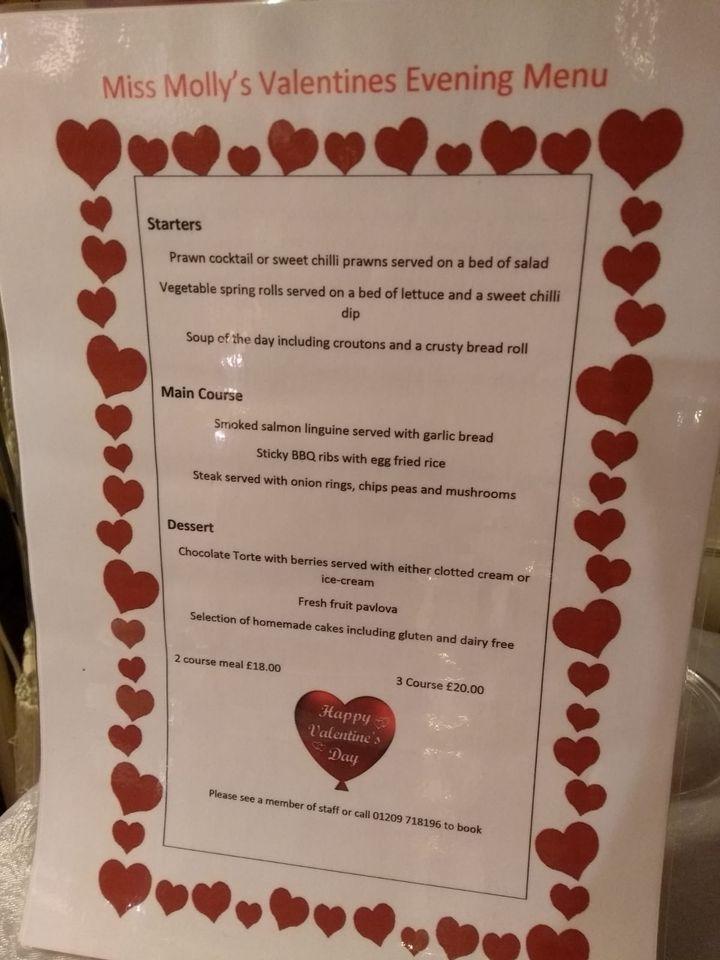 Miss Molly's Valentines Evening Menu
Starters
Prawn cocktail or sweet chilli prawns served on a bed of salad
Vegetable spring rolls served on a bed of lettuce and a sweet chilli
dip
Soup of the day including croutons and a crusty bread roll
Main Course
Smoked salmon linguine served with garlic bread
Sticky BBQ ribs with egg fried rice
Steak served with onion rings, chips peas and mushrooms
Dessert
Chocolate Torte with berries served with either clotted cream or
ice-cream
Fresh fruit pavlova
Selection of homemade cakes including gluten and dairy free
2 course meal £18.00
3 Course £20.00
Happy
Valentine's
Day
Please see a member of staff or call 01209 718196 to book